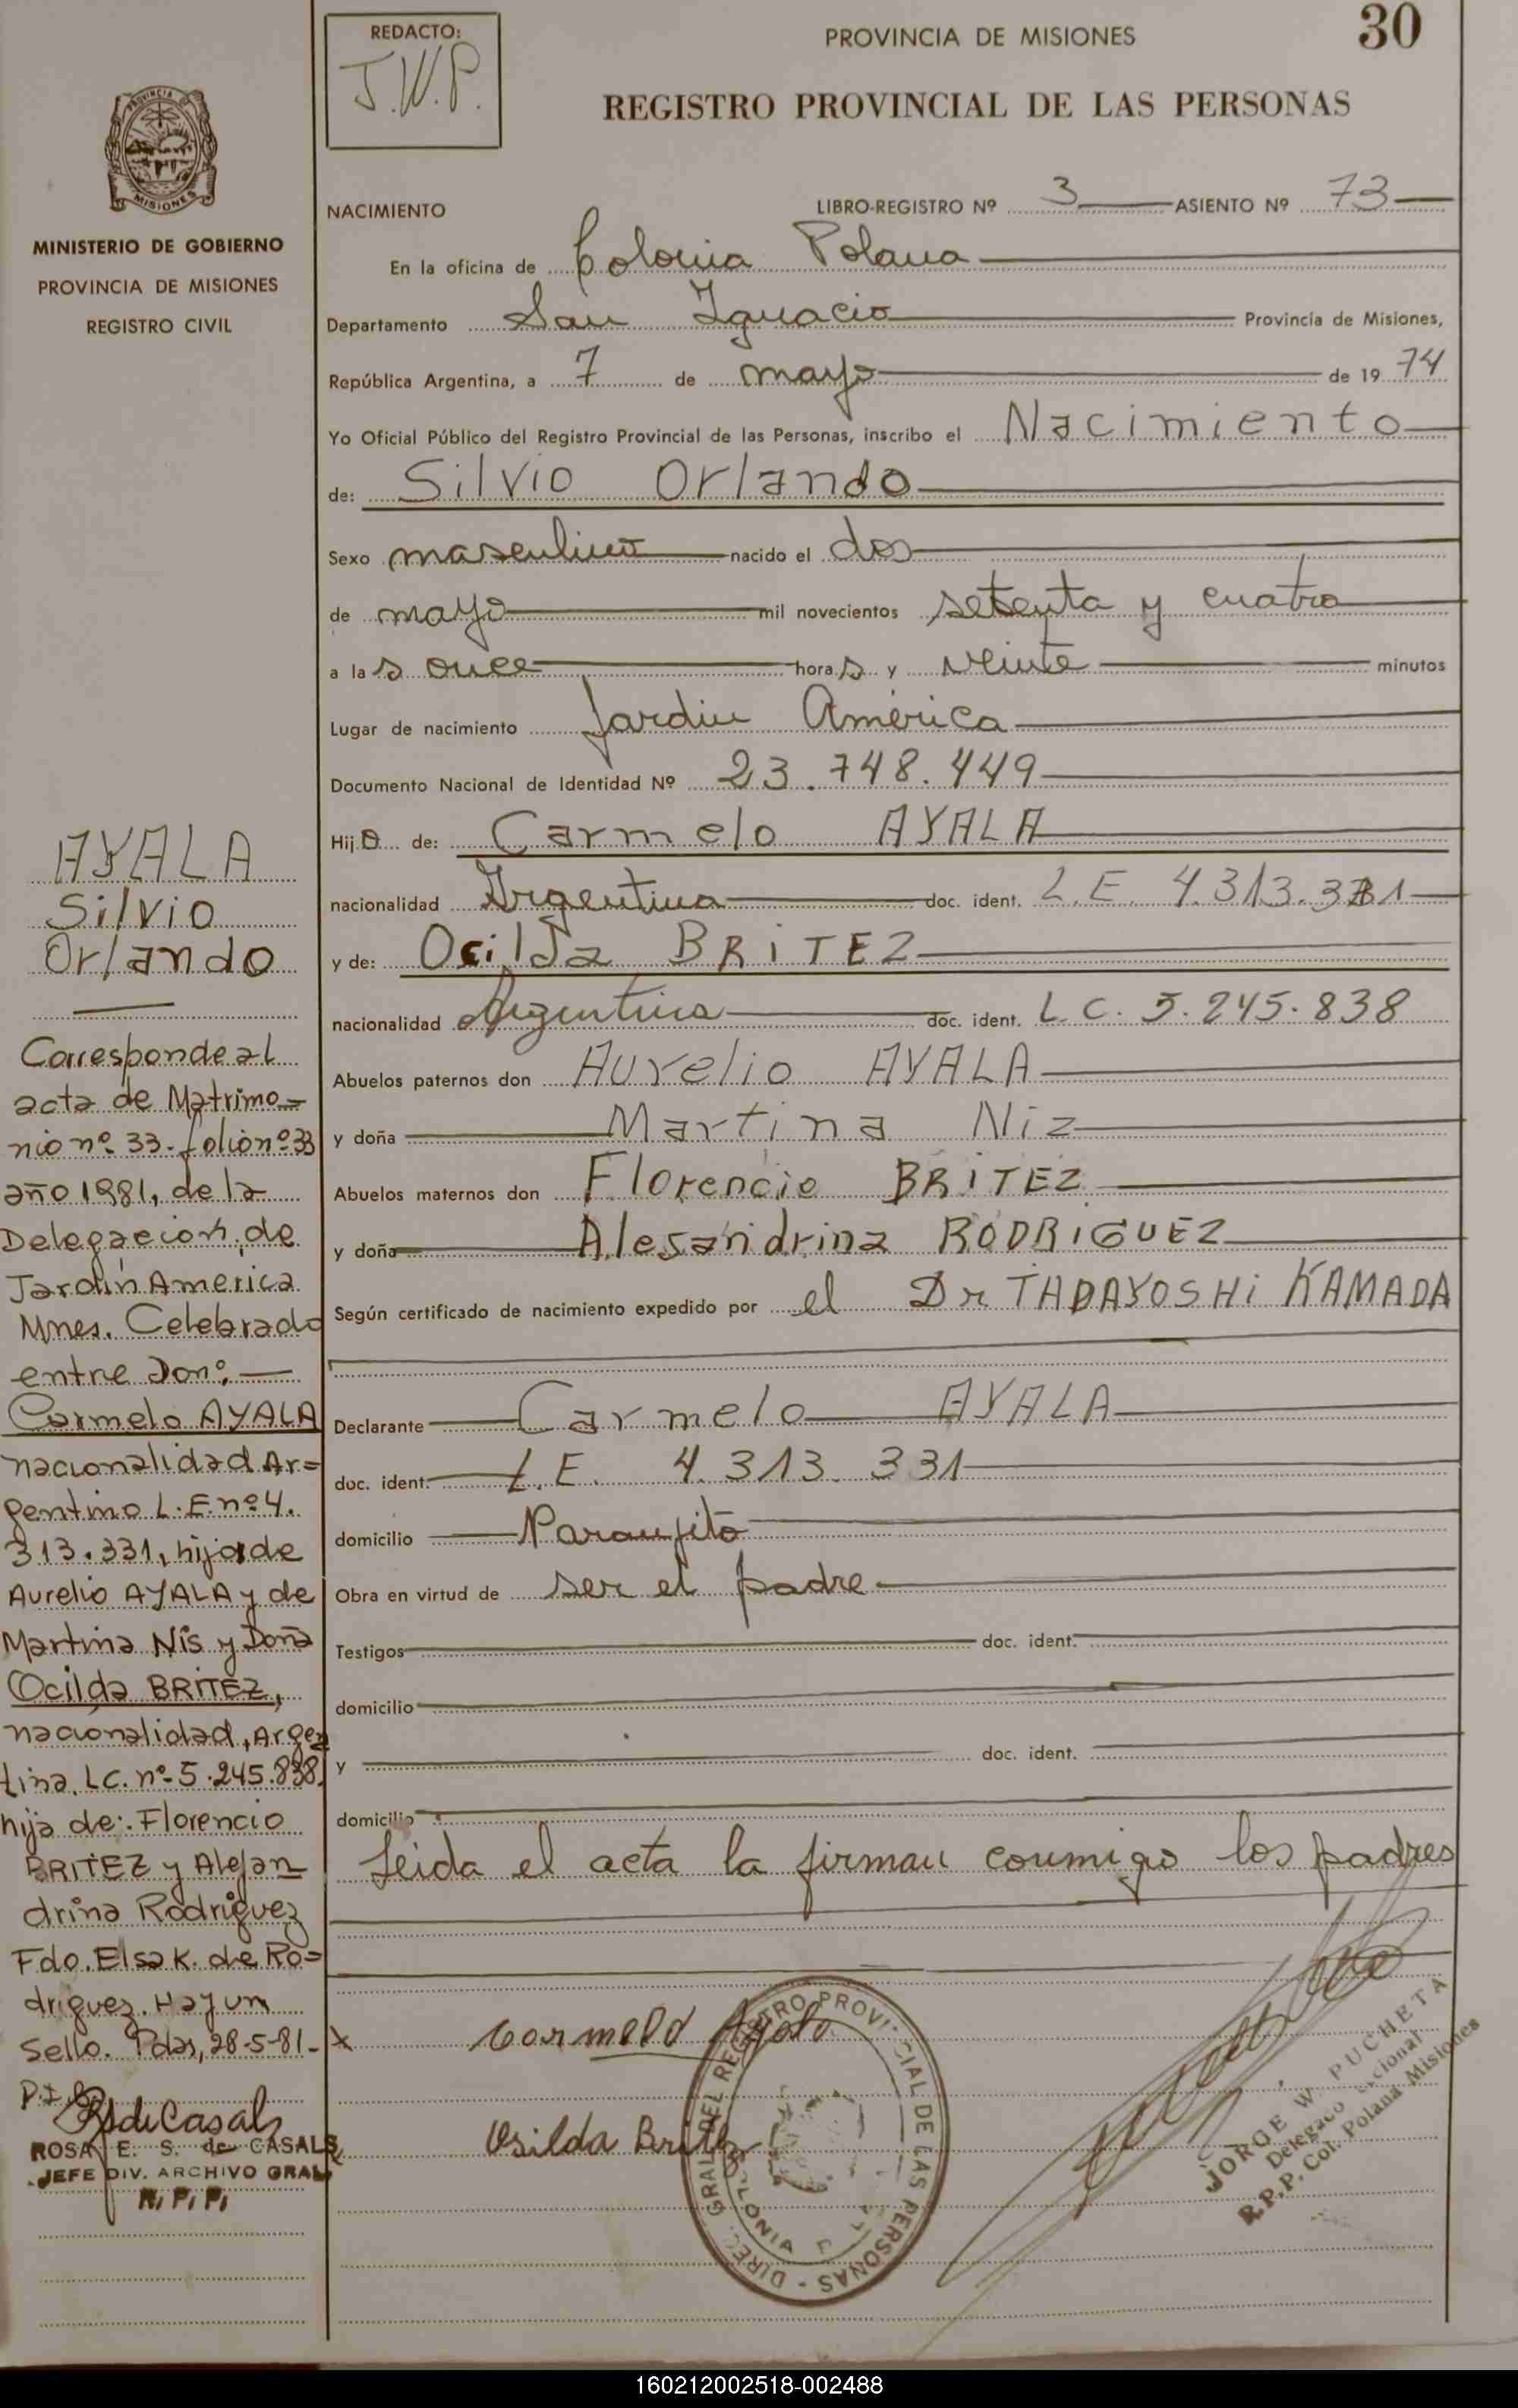 REDACTO:
J.W.P.
PROVINCIA DE MISIONES
30
REGISTRO PROVINCIAL DE LAS PERSONAS
PROVINCIA DE
MISIONES
MINISTERIO DE GOBIERNO
PROVINCIA DE MISIONES
REGISTRO CIVIL
NACIMIENTO
LIBRO-REGISTRO Nº 3 ASIENTO Nº 73
En la oficina de Colonia Polana
Departamento San Ignacio Provincia de Misiones,
República Argentina, a 7 de mayo de 1974
Yo Oficial Público del Registro Provincial de las Personas, inscribo el Nacimiento
de: Silvio Orlando
Sexo masculino nacido el dos
de mayo mil novecientos setenta y cuatro
a las once horas y veinte minutos
Lugar de nacimiento Jardin América
Documento Nacional de Identidad Nº 23.748.449
Hijo de: Carmelo AYALA
nacionalidad Argentina doc. ident. L.E. 4.313.331
y de: Ocilda BRITEZ
nacionalidad Argentina doc. ident. L.C. 5.245.838
Abuelos paternos don Aurelio AYALA
y doña Martina Niz
Abuelos maternos don Florencio BRITEZ
y doña Alesandrina RODRIGUEZ
Según certificado de nacimiento expedido por el Dr TADAYOSHi KAMADA
Declarante Carmelo AYALA
doc. ident. L.E. 4.313.331
domicilio Naranjito
Obra en virtud de ser el padre
Testigos doc. ident.
domicilio
y doc. ident.
domicilio
Leida el acta la firman conmigo los padres
Carmelo Ayala
Osilda Britez
DIREC. GRAL. DEL REGISTRO PROVINCIAL DE LAS PERSONAS -
JORGE W. PUCHETA
R.P.P. Col. Polana Misiones
AYALA
Silvio
Orlando
Corresponde al
acta de Matrimo=
nio nº 33-folio nº 33
año 1981, de la
Delegacion de
Jardin America
Mnes. Celebrado
entre Don:
Carmelo AYALA
nacionalidad Ar=
gentino L.E. nº 4.
313.331, hijo de
Aurelio AYALA y de
Martina Nis y Doña
Ocilda BRITEZ,
nacionalidad, Argen
tina. LC. nº 5.245.838.
hija de: Florencio
BRITEZ y Alejan
drina Rodriguez
Fdo. Elsa K. de Ro=
driguez. Hay un
Sello. Pdas, 28-5-81-
ROSA E. S. de CASALS
JEFE DIV. ARCHIVO GRAL
160212002518-002488